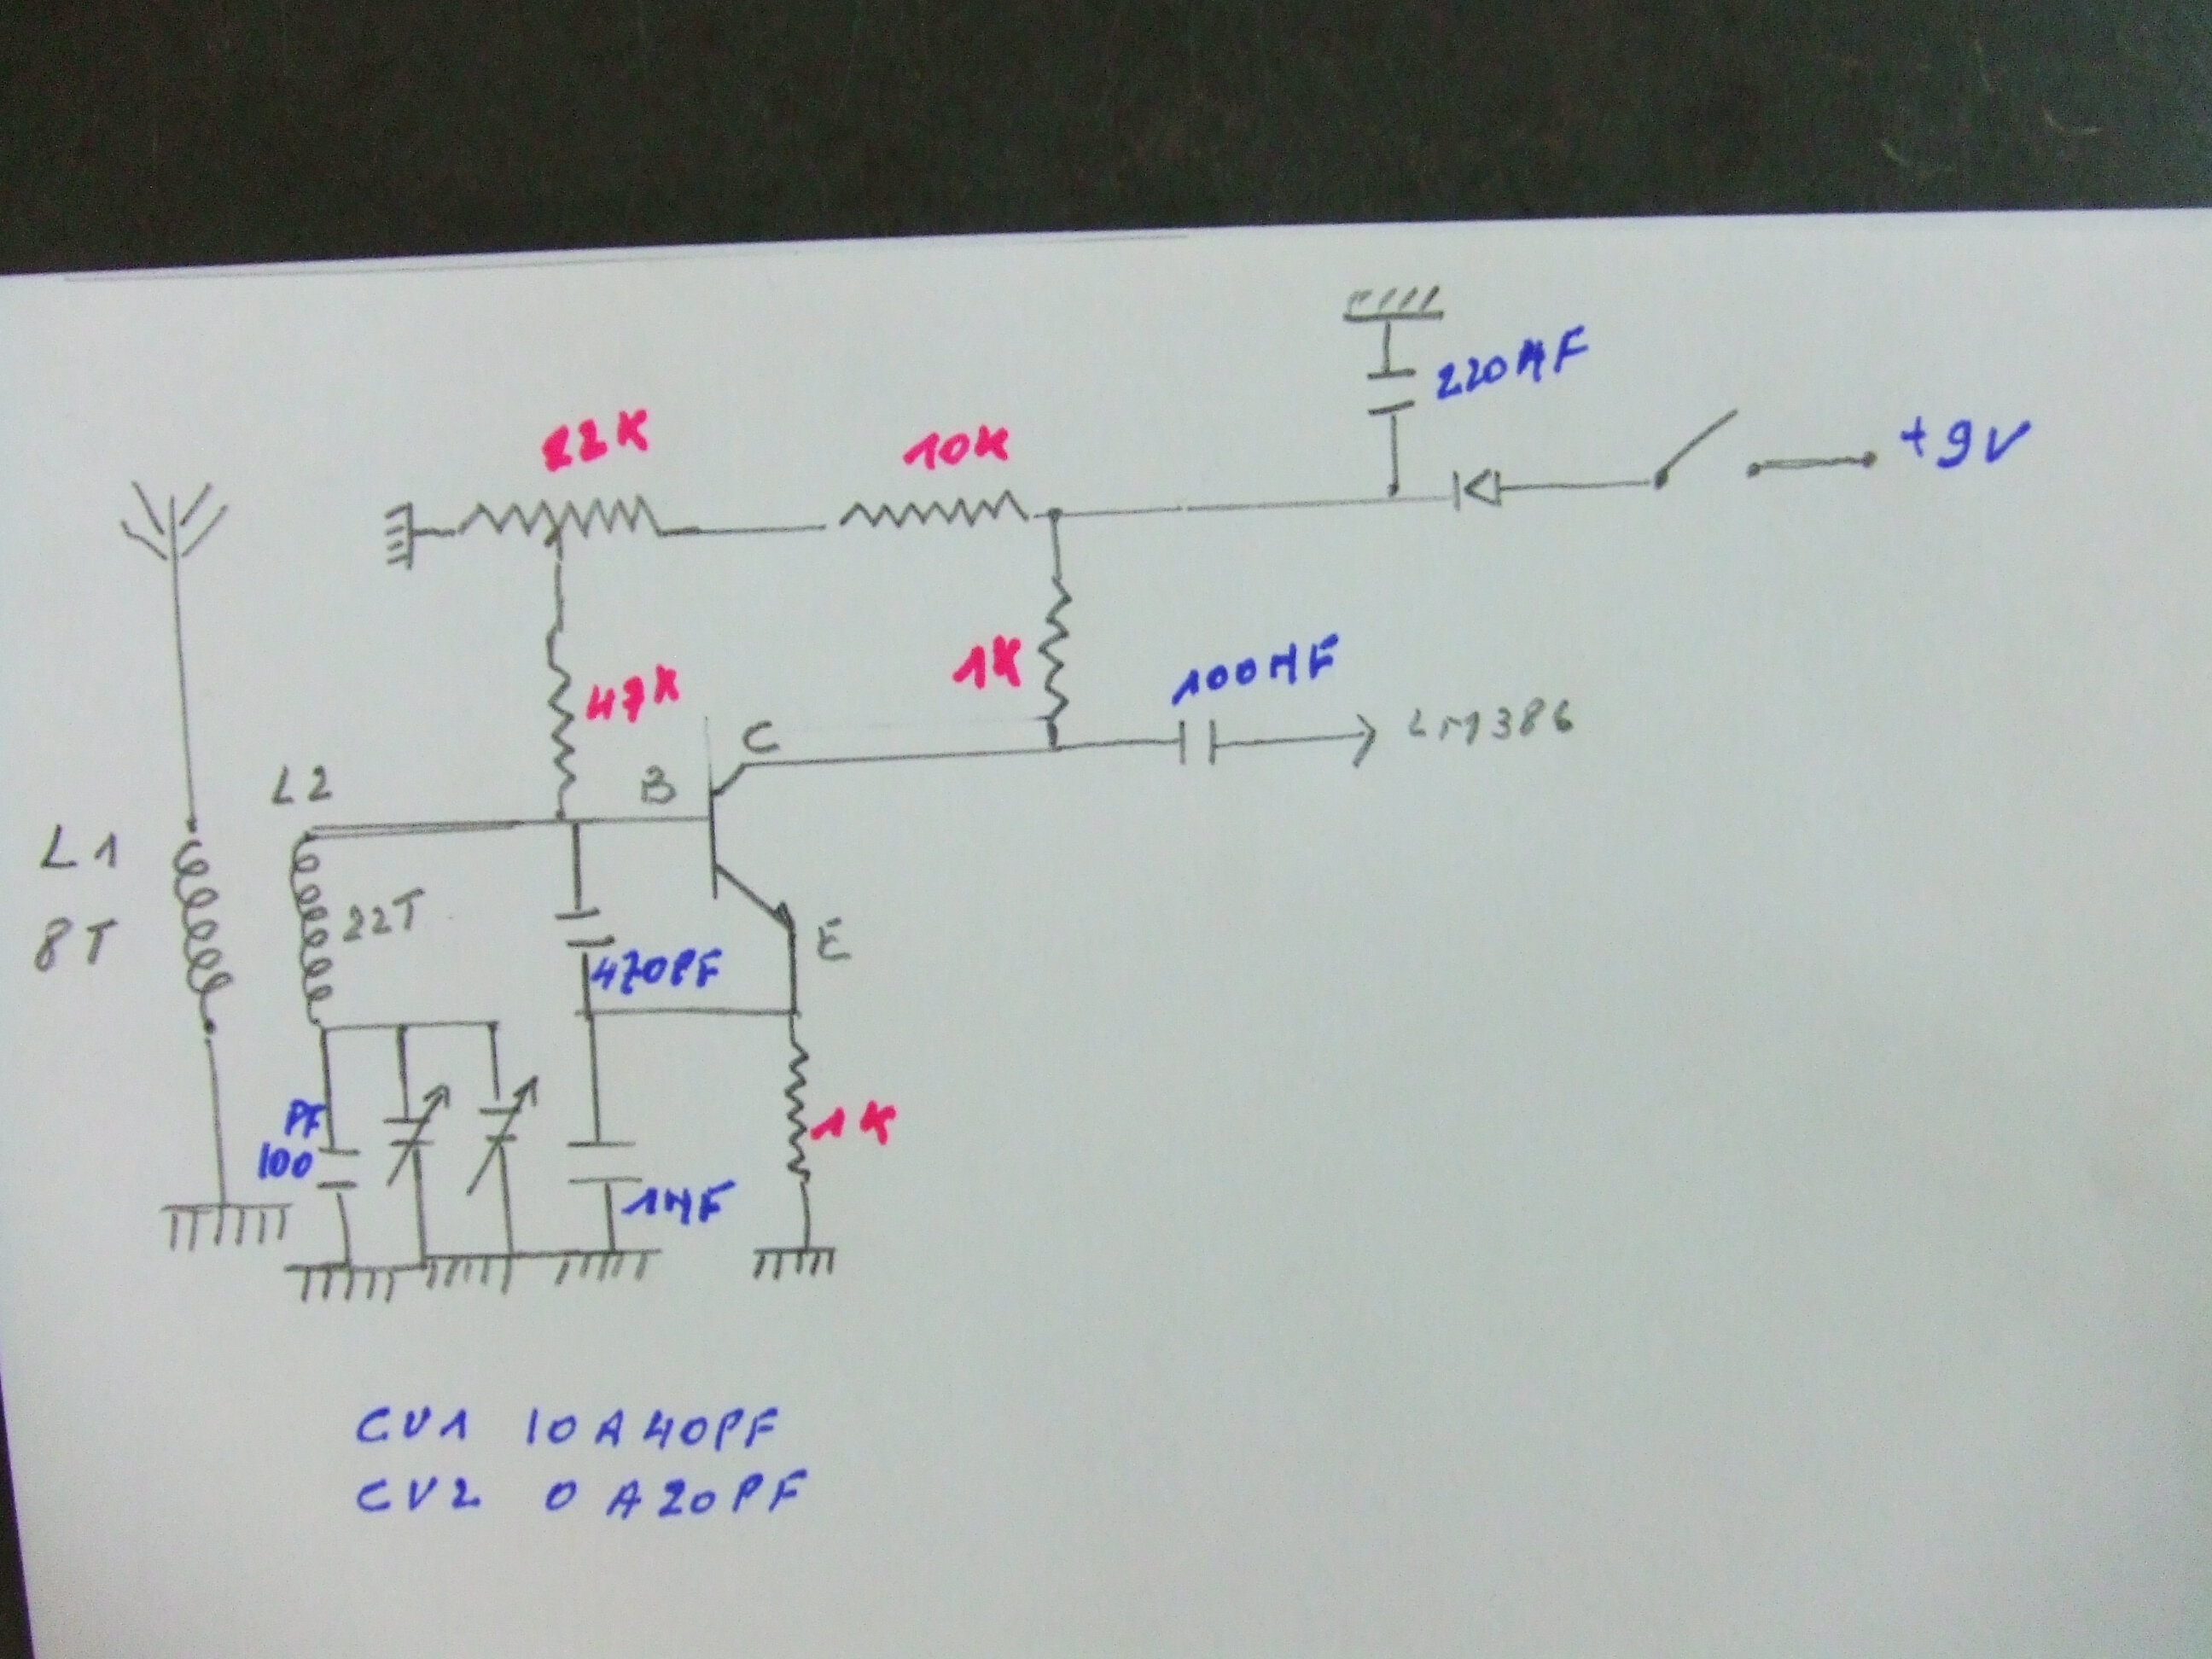 220MF
+9V
22K
10K
47K
1K
100MF
LM386
C
B
E
L2
L1
8T
22T
470PF
PF
100
1K
1MF
CV1 10 A 40PF
CV2 0 A 20PF